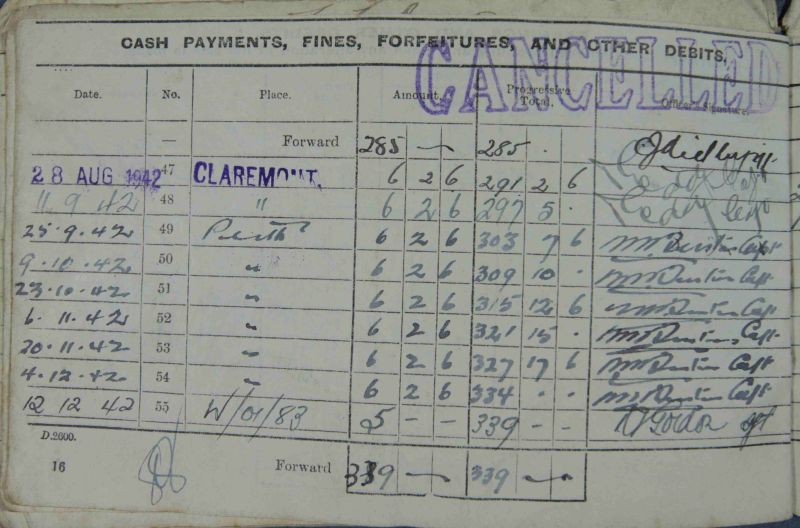 CASH PAYMENTS, FINES, FORFEITURES, AND OTHER DEBITS.
CANCELLED
Date. No. Place. Amount. Progressive Total. Officer's Signature.
— Forward 285 — 285 .
28 AUG 1942 47 CLAREMONT. 6 2 6 291 2 6
11 9 42 48 " 6 2 6 297 5 .
25.9.42 49 Perth 6 2 6 303 7 6 Capt
9.10.42 50 " 6 2 6 309 10 . Capt
23.10.42 51 " 6 2 6 315 12 6 Capt
6.11.42 52 " 6 2 6 321 15 . Capt
20.11.42 53 " 6 2 6 327 17 6 Capt
4.12.42 54 " 6 2 6 334 . . Capt
12 12 42 55 W/01/83 5 - - 339 - -
D.2600.
16 Forward 339 — 339 . —